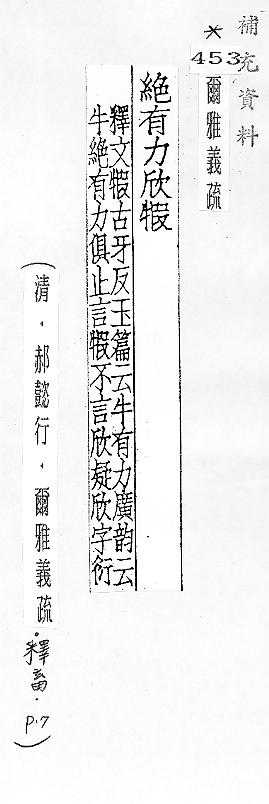 補充資料
＊
453
爾雅義疏
絕有力欣犌
釋文犌古牙反玉篇云牛有力廣韵云
牛絕有力俱止言犌不言欣疑欣字衍
（清．郝懿行．爾雅義疏．釋畜．P.7）